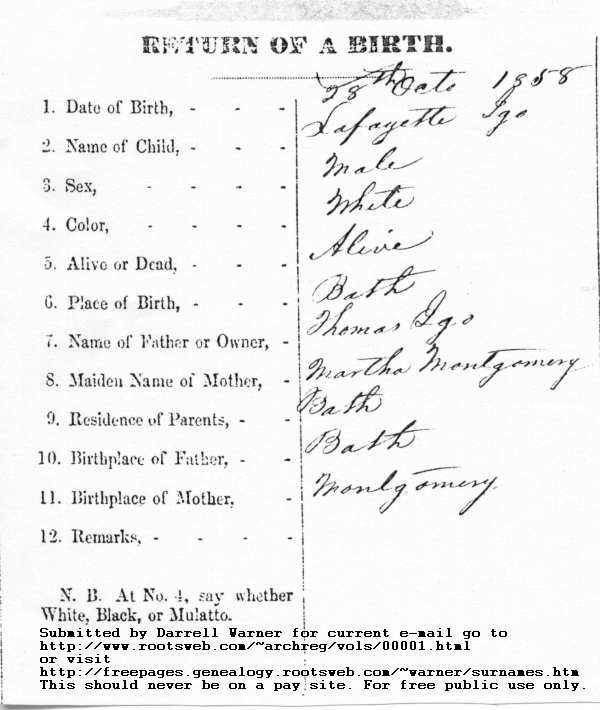 RETURN OF A BIRTH.
1. Date of Birth, - - - 28th Octo 1858
2. Name of Child, - - - Lafayette Igo
3. Sex, - - - - Male
4. Color, - - - - White
5. Alive or Dead, - - - Alive
6. Place of Birth, - - - Bath
7. Name of Father or Owner, - Thomas Igo
8. Maiden Name of Mother, - Martha Montgomery
9. Residence of Parents, - - Bath
10. Birthplace of Father, - - Bath
11. Birthplace of Mother, - Montgomery
12. Remarks, - - - -
N. B. At No. 4, say whether
White, Black, or Mulatto.
Submitted by Darrell Warner for current e-mail go to
http://www.rootsweb.com/~archreg/vols/00001.html
or visit
http://freepages.genealogy.rootsweb.com/~warner/surnames.htm
This should never be on a pay site. For free public use only.